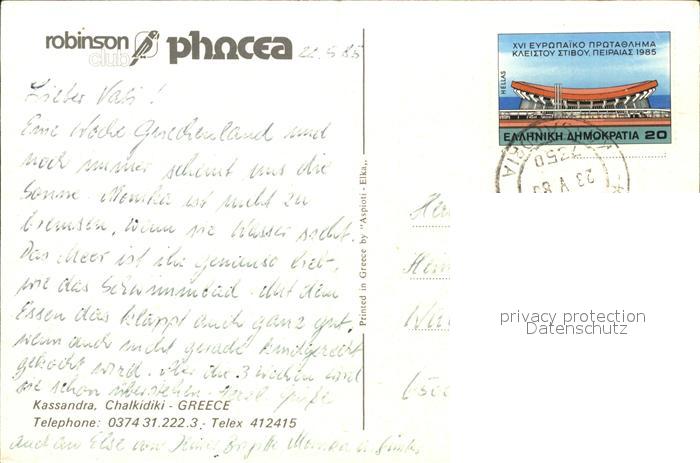 robinson
club
phocea
22.5.85
Lieber Vati!
Eine Woche Griechenland und
noch immer scheint uns die
Sonne. Monika ist nicht zu
bremsen, wenn sie Wasser sieht.
Das Meer ist ihr genauso lieb,
wie das Schwimmbad. Mit dem
Essen das klappt auch ganz gut,
wenn auch nicht gerade kindgerecht
gekocht wird. Aber die 3 Wochen wird
sie schon überstehen.
Kassandra, Chalkidiki - GREECE
Telephone: 0374 31.222.3 - Telex 412415
auch an Else von Brigitte Monika u.
Printed in Greece by "Aspioti - Elka"
XVI ΕΥΡΩΠΑΪΚΟ ΠΡΩΤΑΘΛΗΜΑ
ΚΛΕΙΣΤΟΥ ΣΤΙΒΟΥ, ΠΕΙΡΑΙΑΣ 1985
HELLAS
ΕΛΛΗΝΙΚΗ ΔΗΜΟΚΡΑΤΙΑ 20
23 V 8
privacy protection
Datenschutz